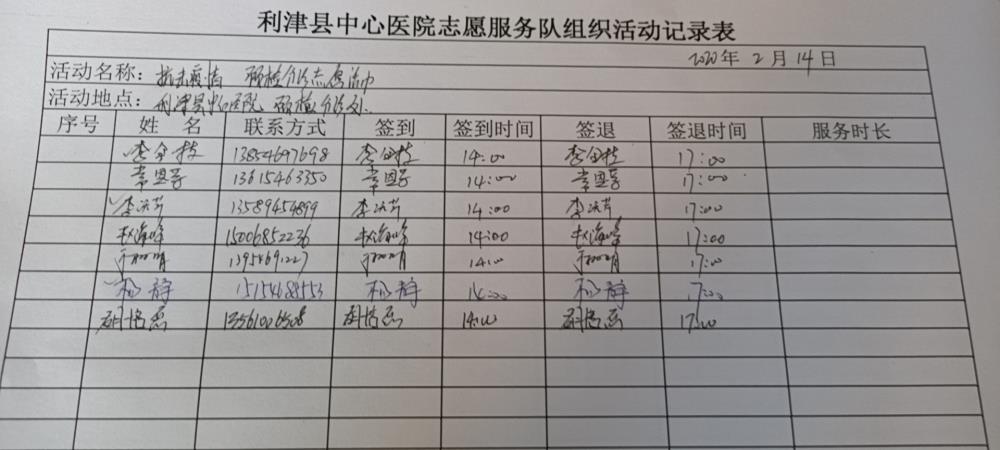 利津县中心医院志愿服务队组织活动记录表
2020年 2月 14日
活动名称：抗击疫情 预检分诊志愿活动
活动地点：利津县中心医院 预检分诊处.
序号 姓名 联系方式 签到 签到时间 签退 签退时间 服务时长
李 13854697698 李 14:00 李 17:00
常 13615463350 常 14:00 常 17:00
李 13589454899 李 14:00 李 17:00
赵海峰 15006852236 赵海峰 14:00 赵海峰 17:00
14:00 17:00
静 15154688553 静 14:00 静 17:00
13561006508 14:00 17:00